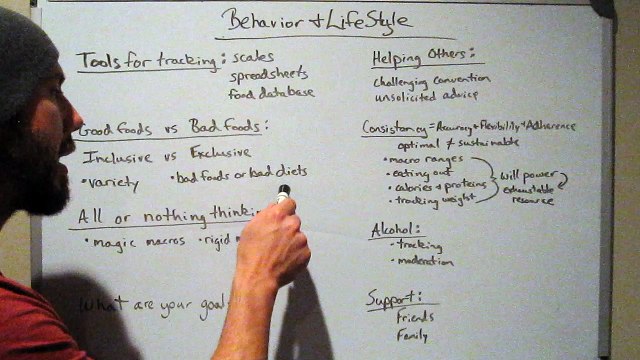 Behavior + LifeStyle
Tools for tracking: scales
spreadsheets
food database
Good foods vs Bad foods:
Inclusive vs Exclusive
• variety • bad foods or bad diets
All or nothing thinkin
• magic macros • rigid
What are your goal
Helping Others:
challenging convention
unsolicited advice
Consistancy = Accuracy + Flexibility + Adherence
optimal ≠ sustainable
• macro ranges
• eating out
• calories + proteins
• tracking weight
will power
exhaustable
resource
Alcohol:
• tracking
• moderation
Support:
Friends
Family